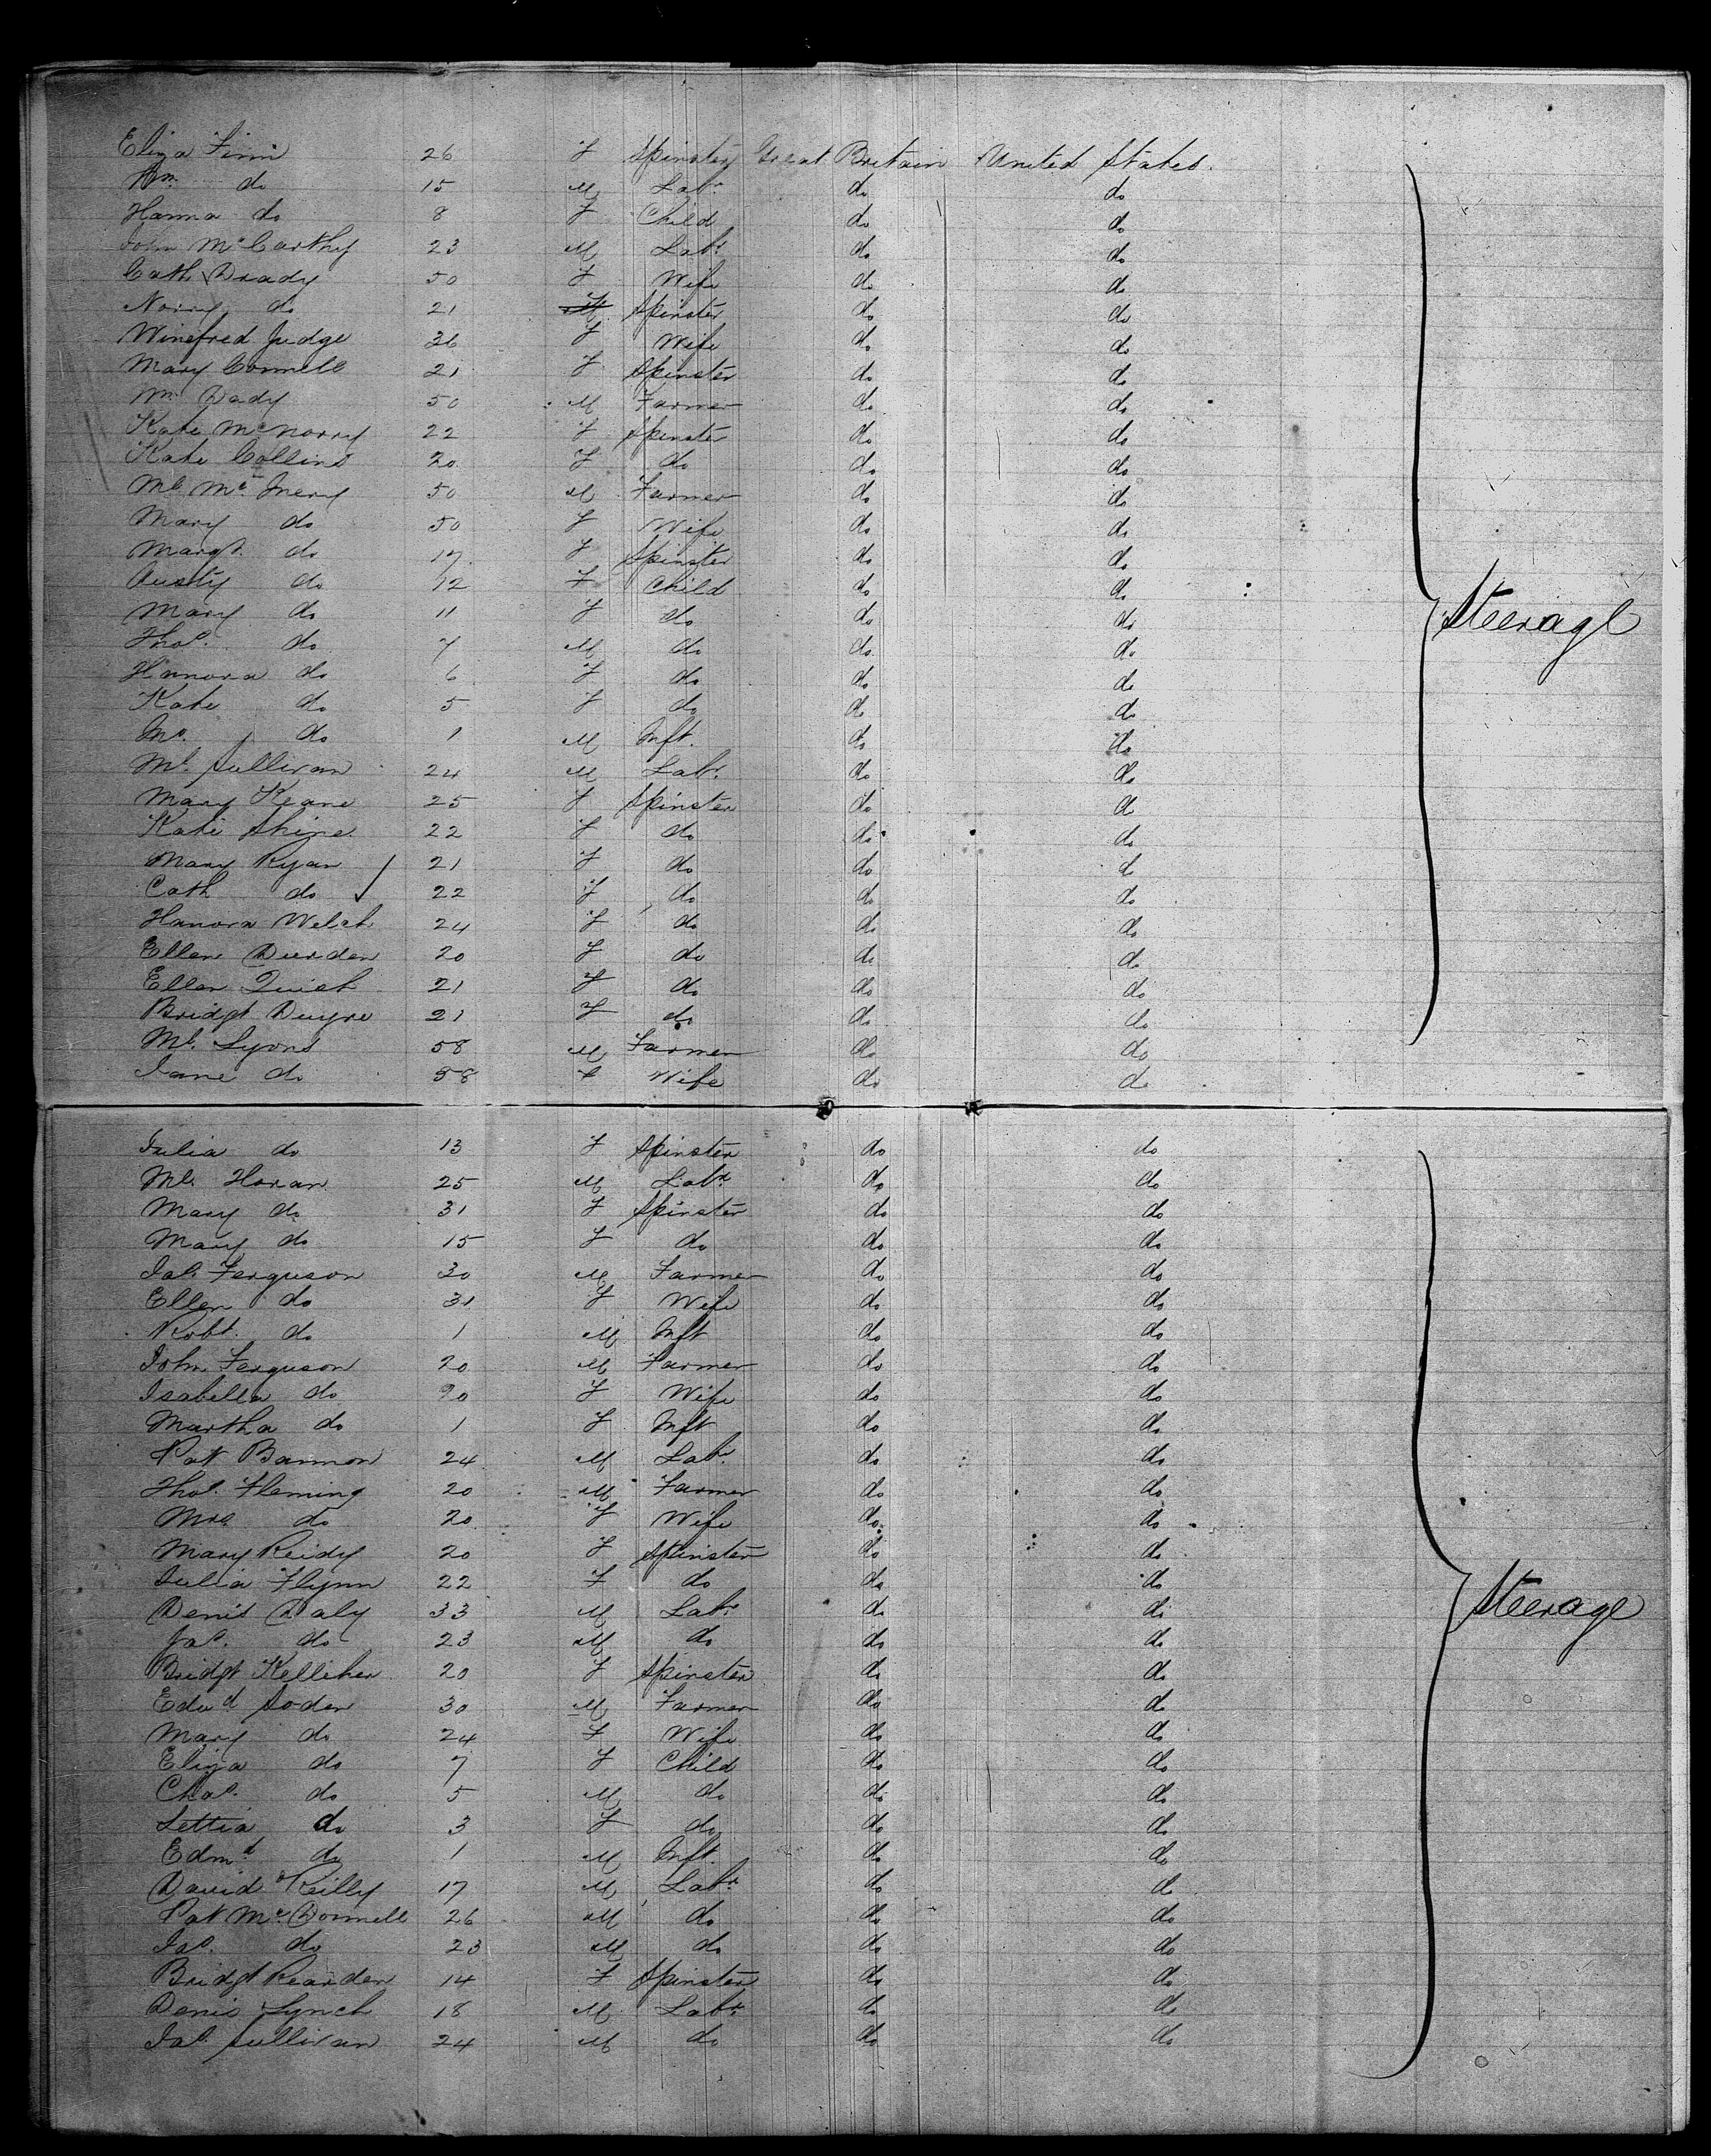 Eliza Finn 26 F Spinster Great Britain United States.
Wm. do 15 M Labr. do do
Hanna do 8 F Child do do
John McCarthy 23 M Labr. do do
Cath Brady 50 F Wife do do
Norry do 21 Spinster do do
Winefred Judge 36 F Wife do do
Mary Connell 21 F Spinster do do
Wm Dady 50 M Farmer do do
Kate McNorry 22 F Spinster do do
Kate Collins 20 F do do do
Ml McInery 50 M Farmer do do
Mary do 50 F Wife do do
Margt. do 17 F Spinster do do
Austy do 12 F Child do do
Steerage
Mary do 11 F do do do
Thos. do 7 M do do do
Hanora do 6 F do do do
Kate do 5 F do do do
Jno. do 1 M Inft. do do
Ml. Sullivan 24 M Labr. do do
Mary Keane 25 F Spinster do do
Kate Shine 22 F do do do
Mary Ryan 21 F do do do
Cath do 22 F do do do
Hanora Welch 24 F do do do
Ellen Durden 20 F do do do
Ellen Quish 21 F do do do
Bridgt Dwyre 21 F do do do
Ml. Lyons 58 M Farmer do do
Jane do 58 F Wife do do
Julia do 13 F Spinster do do
Ml. Horan 25 M Labr. do do
Mary do 31 F Spinster do do
Mary do 15 F do do do
Jas. Ferguson 30 M Farmer do do
Ellen do 31 F Wife do do
Robt. do 1 M Inft do do
John Ferguson 20 M Farmer do do
Isabella do 20 F Wife do do
Martha do 1 F Inft do do
Pat Bannon 24 M Labr. do do
Thos. Fleming 20 M Farmer do do
Mrs. do 20 F Wife do do
Mary Reidy 20 F Spinster do do
Julia Flynn 22 F do do do
Denis Daly 33 M Labr. do do
Steerage
Jas. do 23 M do do do
Bridgt Kelliher 20 F Spinster do do
Edwd Soden 30 M Farmer do do
Mary do 24 F Wife do do
Eliza do 7 F Child do do
Chas. do 5 M do do do
Lettia do 3 F do do do
Edmd do 1 M Inft. do do
David OKeilly 17 M Labr. do do
Pat McDonnell 26 M do do do
Jas. do 23 M do do do
Bridgt Rearden 14 F Spinster do do
Denis Lynch 18 M Labr. do do
Jas. Sullivan 24 M do do do